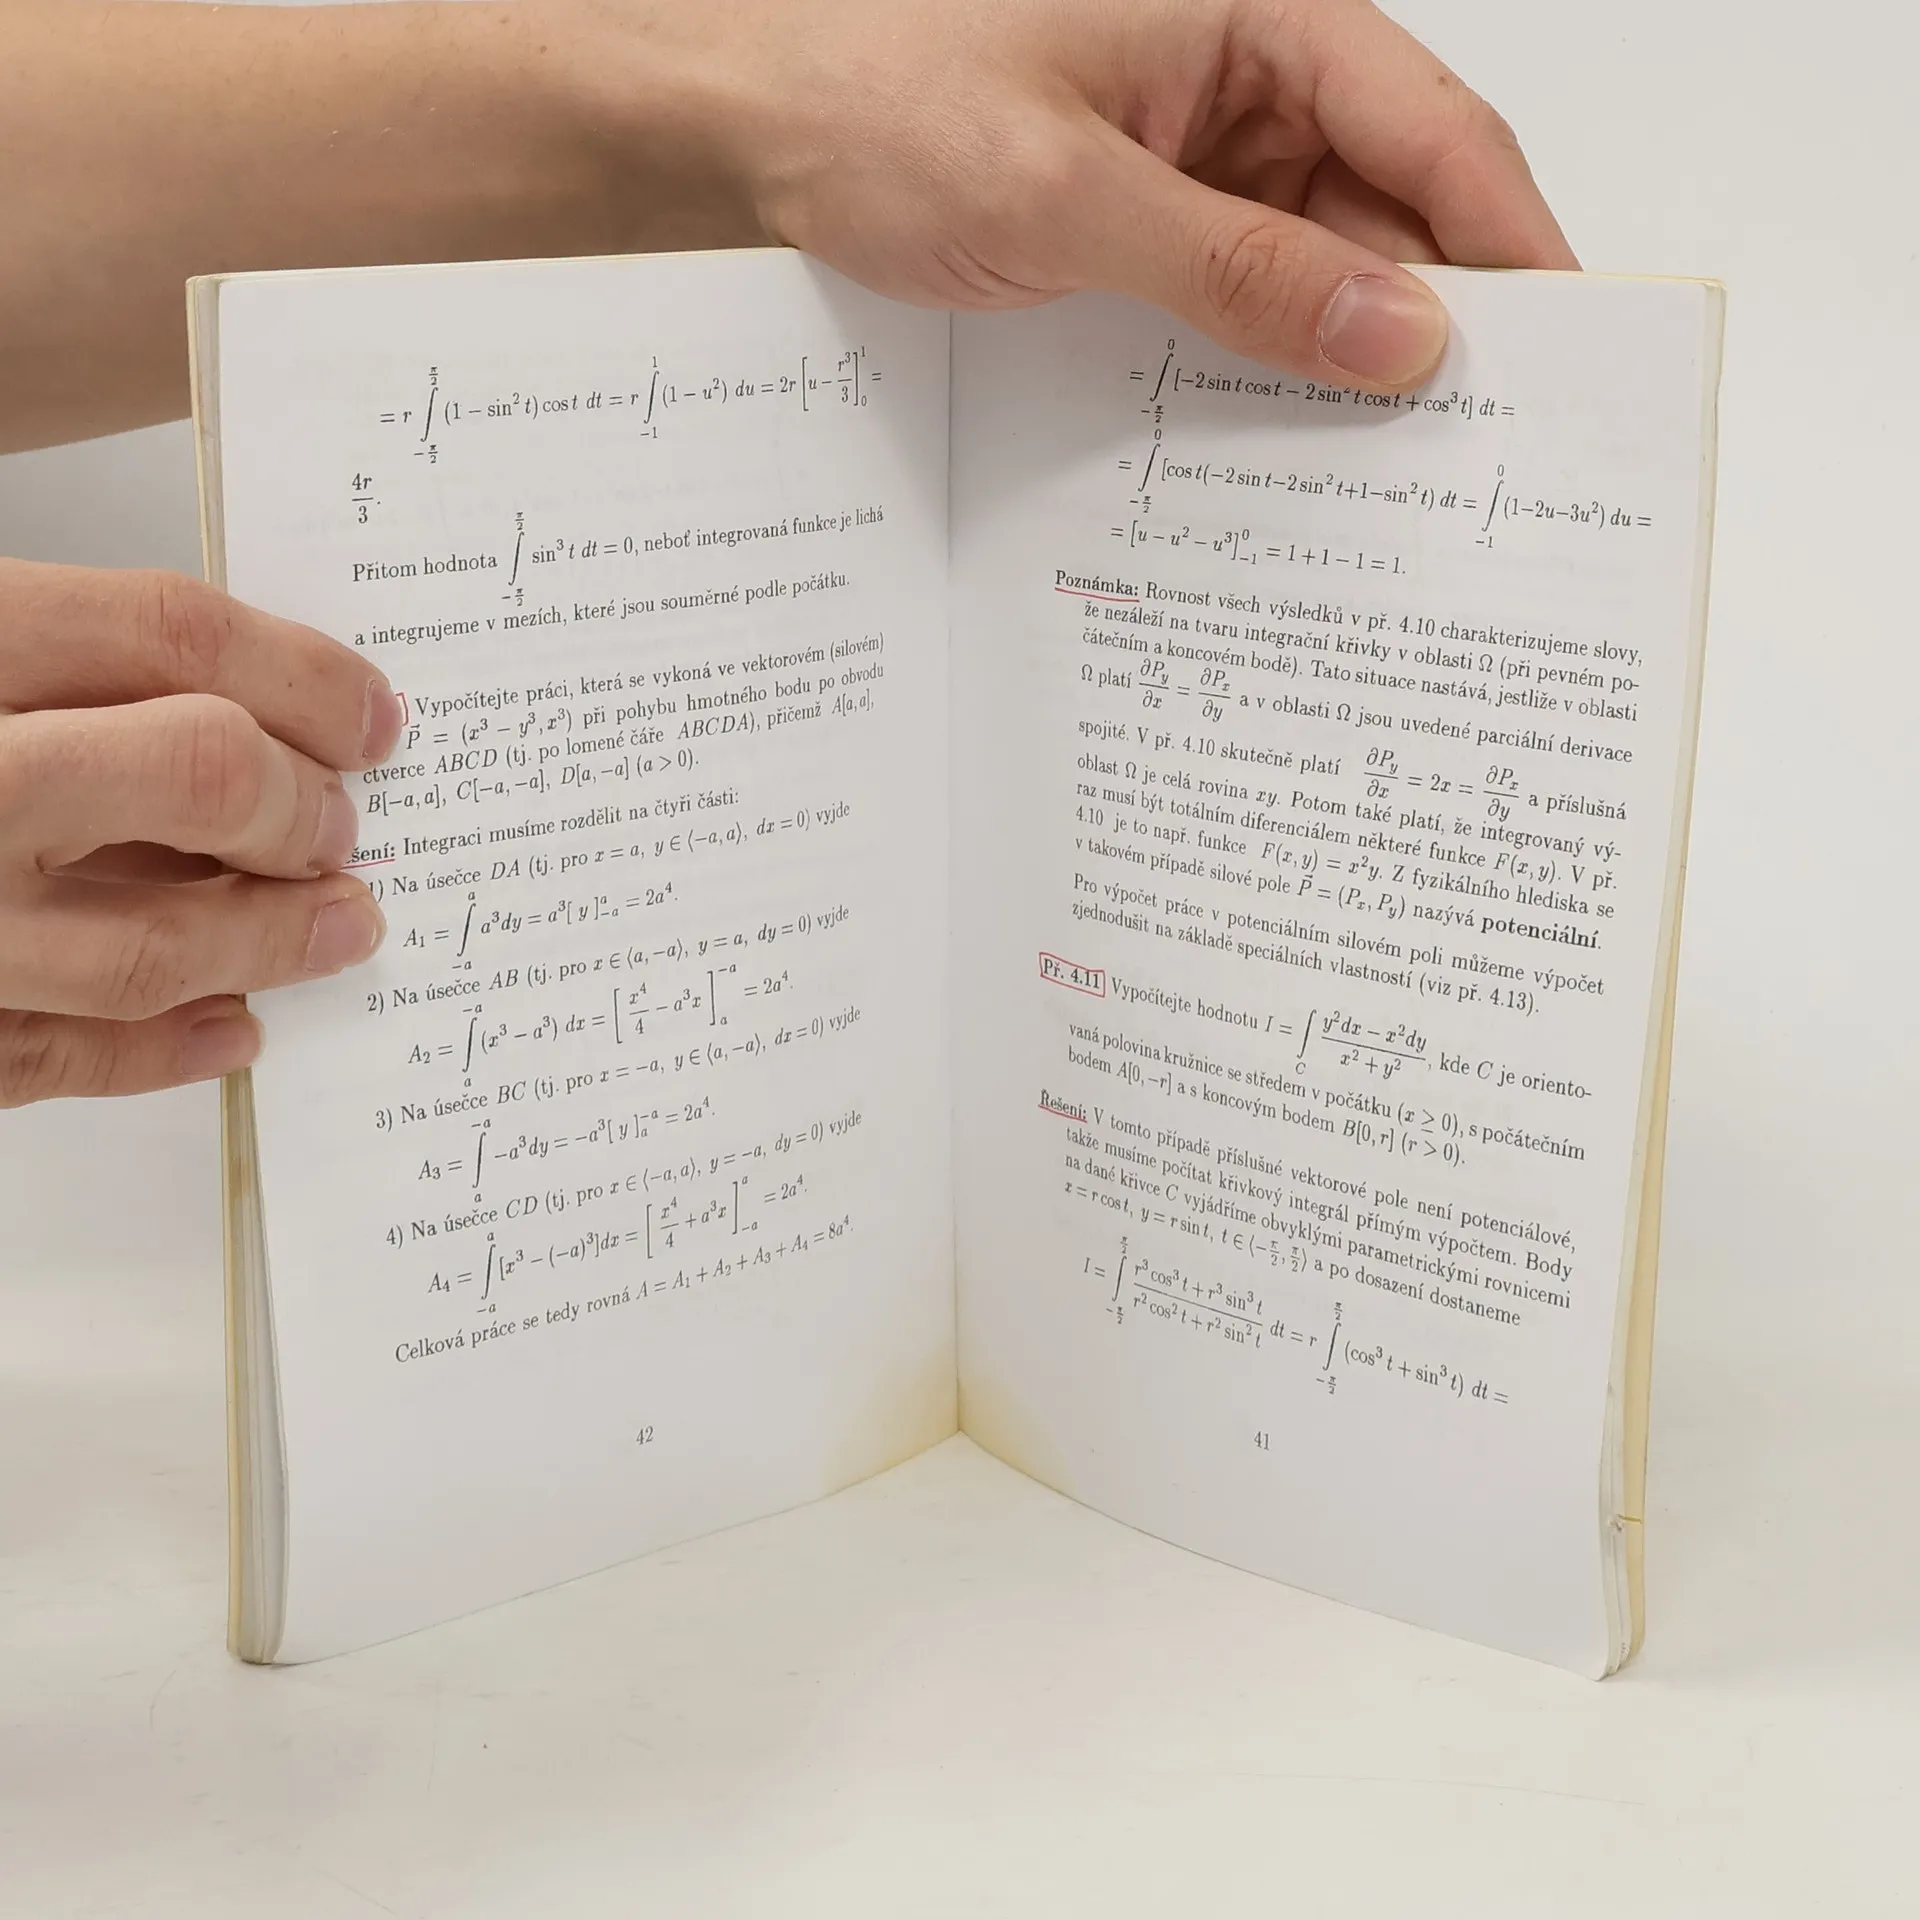 = r ∫_{-π/2}^{π/2} (1 − sin² t) cos t dt = r ∫_{−1}^{1} (1 − u²) du = 2r [u − r³/3]_0^1 =
4r/3.
Přitom hodnota ∫_{-π/2}^{π/2} sin³ t dt = 0, neboť integrovaná funkce je lichá
a integrujeme v mezích, které jsou souměrné podle počátku.
Vypočítejte práci, která se vykoná ve vektorovém (silovém)
P⃗ = (x³ − y³, x³) při pohybu hmotného bodu po obvodu
čtverce ABCD (tj. po lomené čáře ABCDA), přičemž A[a, a],
B[−a, a], C[−a, −a], D[a, −a] (a > 0).
šení: Integraci musíme rozdělit na čtyři části:
1) Na úsečce DA (tj. pro x = a, y ∈ ⟨−a, a⟩, dx = 0) vyjde
A₁ = ∫_{−a}^{a} a³dy = a³[ y ]_{−a}^{a} = 2a⁴.
2) Na úsečce AB (tj. pro x ∈ ⟨a, −a⟩, y = a, dy = 0) vyjde
A₂ = ∫_{a}^{−a} (x³ − a³) dx = [x⁴/4 − a³x]_{a}^{−a} = 2a⁴.
3) Na úsečce BC (tj. pro x = −a, y ∈ ⟨a, −a⟩, dx = 0) vyjde
A₃ = ∫_{a}^{−a} −a³dy = −a³[ y ]_{a}^{−a} = 2a⁴.
4) Na úsečce CD (tj. pro x ∈ ⟨−a, a⟩, y = −a, dy = 0) vyjde
A₄ = ∫_{−a}^{a} [x³ − (−a)³]dx = [x⁴/4 + a³x]_{−a}^{a} = 2a⁴.
Celková práce se tedy rovná A = A₁ + A₂ + A₃ + A₄ = 8a⁴.
42
= ∫_{−π/2}^{0} [−2 sin t cos t − 2 sin² t cos t + cos³ t] dt =
= ∫_{−π/2}^{0} [cos t(−2 sin t−2 sin² t+1−sin² t) dt = ∫_{−1}^{0} (1−2u−3u²) du =
= [u − u² − u³]_{−1}^{0} = 1 + 1 − 1 = 1.
Poznámka: Rovnost všech výsledků v př. 4.10 charakterizujeme slovy,
že nezáleží na tvaru integrační křivky v oblasti Ω (při pevném po-
čátečním a koncovém bodě). Tato situace nastává, jestliže v oblasti
Ω platí ∂P_y/∂x = ∂P_x/∂y a v oblasti Ω jsou uvedené parciální derivace
spojité. V př. 4.10 skutečně platí ∂P_y/∂x = 2x = ∂P_x/∂y a příslušná
oblast Ω je celá rovina xy. Potom také platí, že integrovaný vý-
raz musí být totálním diferenciálem některé funkce F(x, y). V př.
4.10 je to např. funkce F(x, y) = x²y. Z fyzikálního hlediska se
v takovém případě silové pole P⃗ = (P_x, P_y) nazývá potenciální.
Pro výpočet práce v potenciálním silovém poli můžeme výpočet
zjednodušit na základě speciálních vlastností (viz př. 4.13).
Př. 4.11 Vypočítejte hodnotu I = ∫_C (y²dx − x²dy)/(x² + y²), kde C je oriento-
vaná polovina kružnice se středem v počátku (x ≥ 0), s počátečním
bodem A[0, −r] a s koncovým bodem B[0, r] (r > 0).
Řešení: V tomto případě příslušné vektorové pole není potenciálové,
takže musíme počítat křivkový integrál přímým výpočtem. Body
na dané křivce C vyjádříme obvyklými parametrickými rovnicemi
x = r cos t, y = r sin t, t ∈ ⟨−π/2, π/2⟩ a po dosazení dostaneme
I = ∫_{−π/2}^{π/2} (r³ cos³ t + r³ sin³ t)/(r² cos² t + r² sin² t) dt = r ∫_{−π/2}^{π/2} (cos³ t + sin³ t) dt =
41